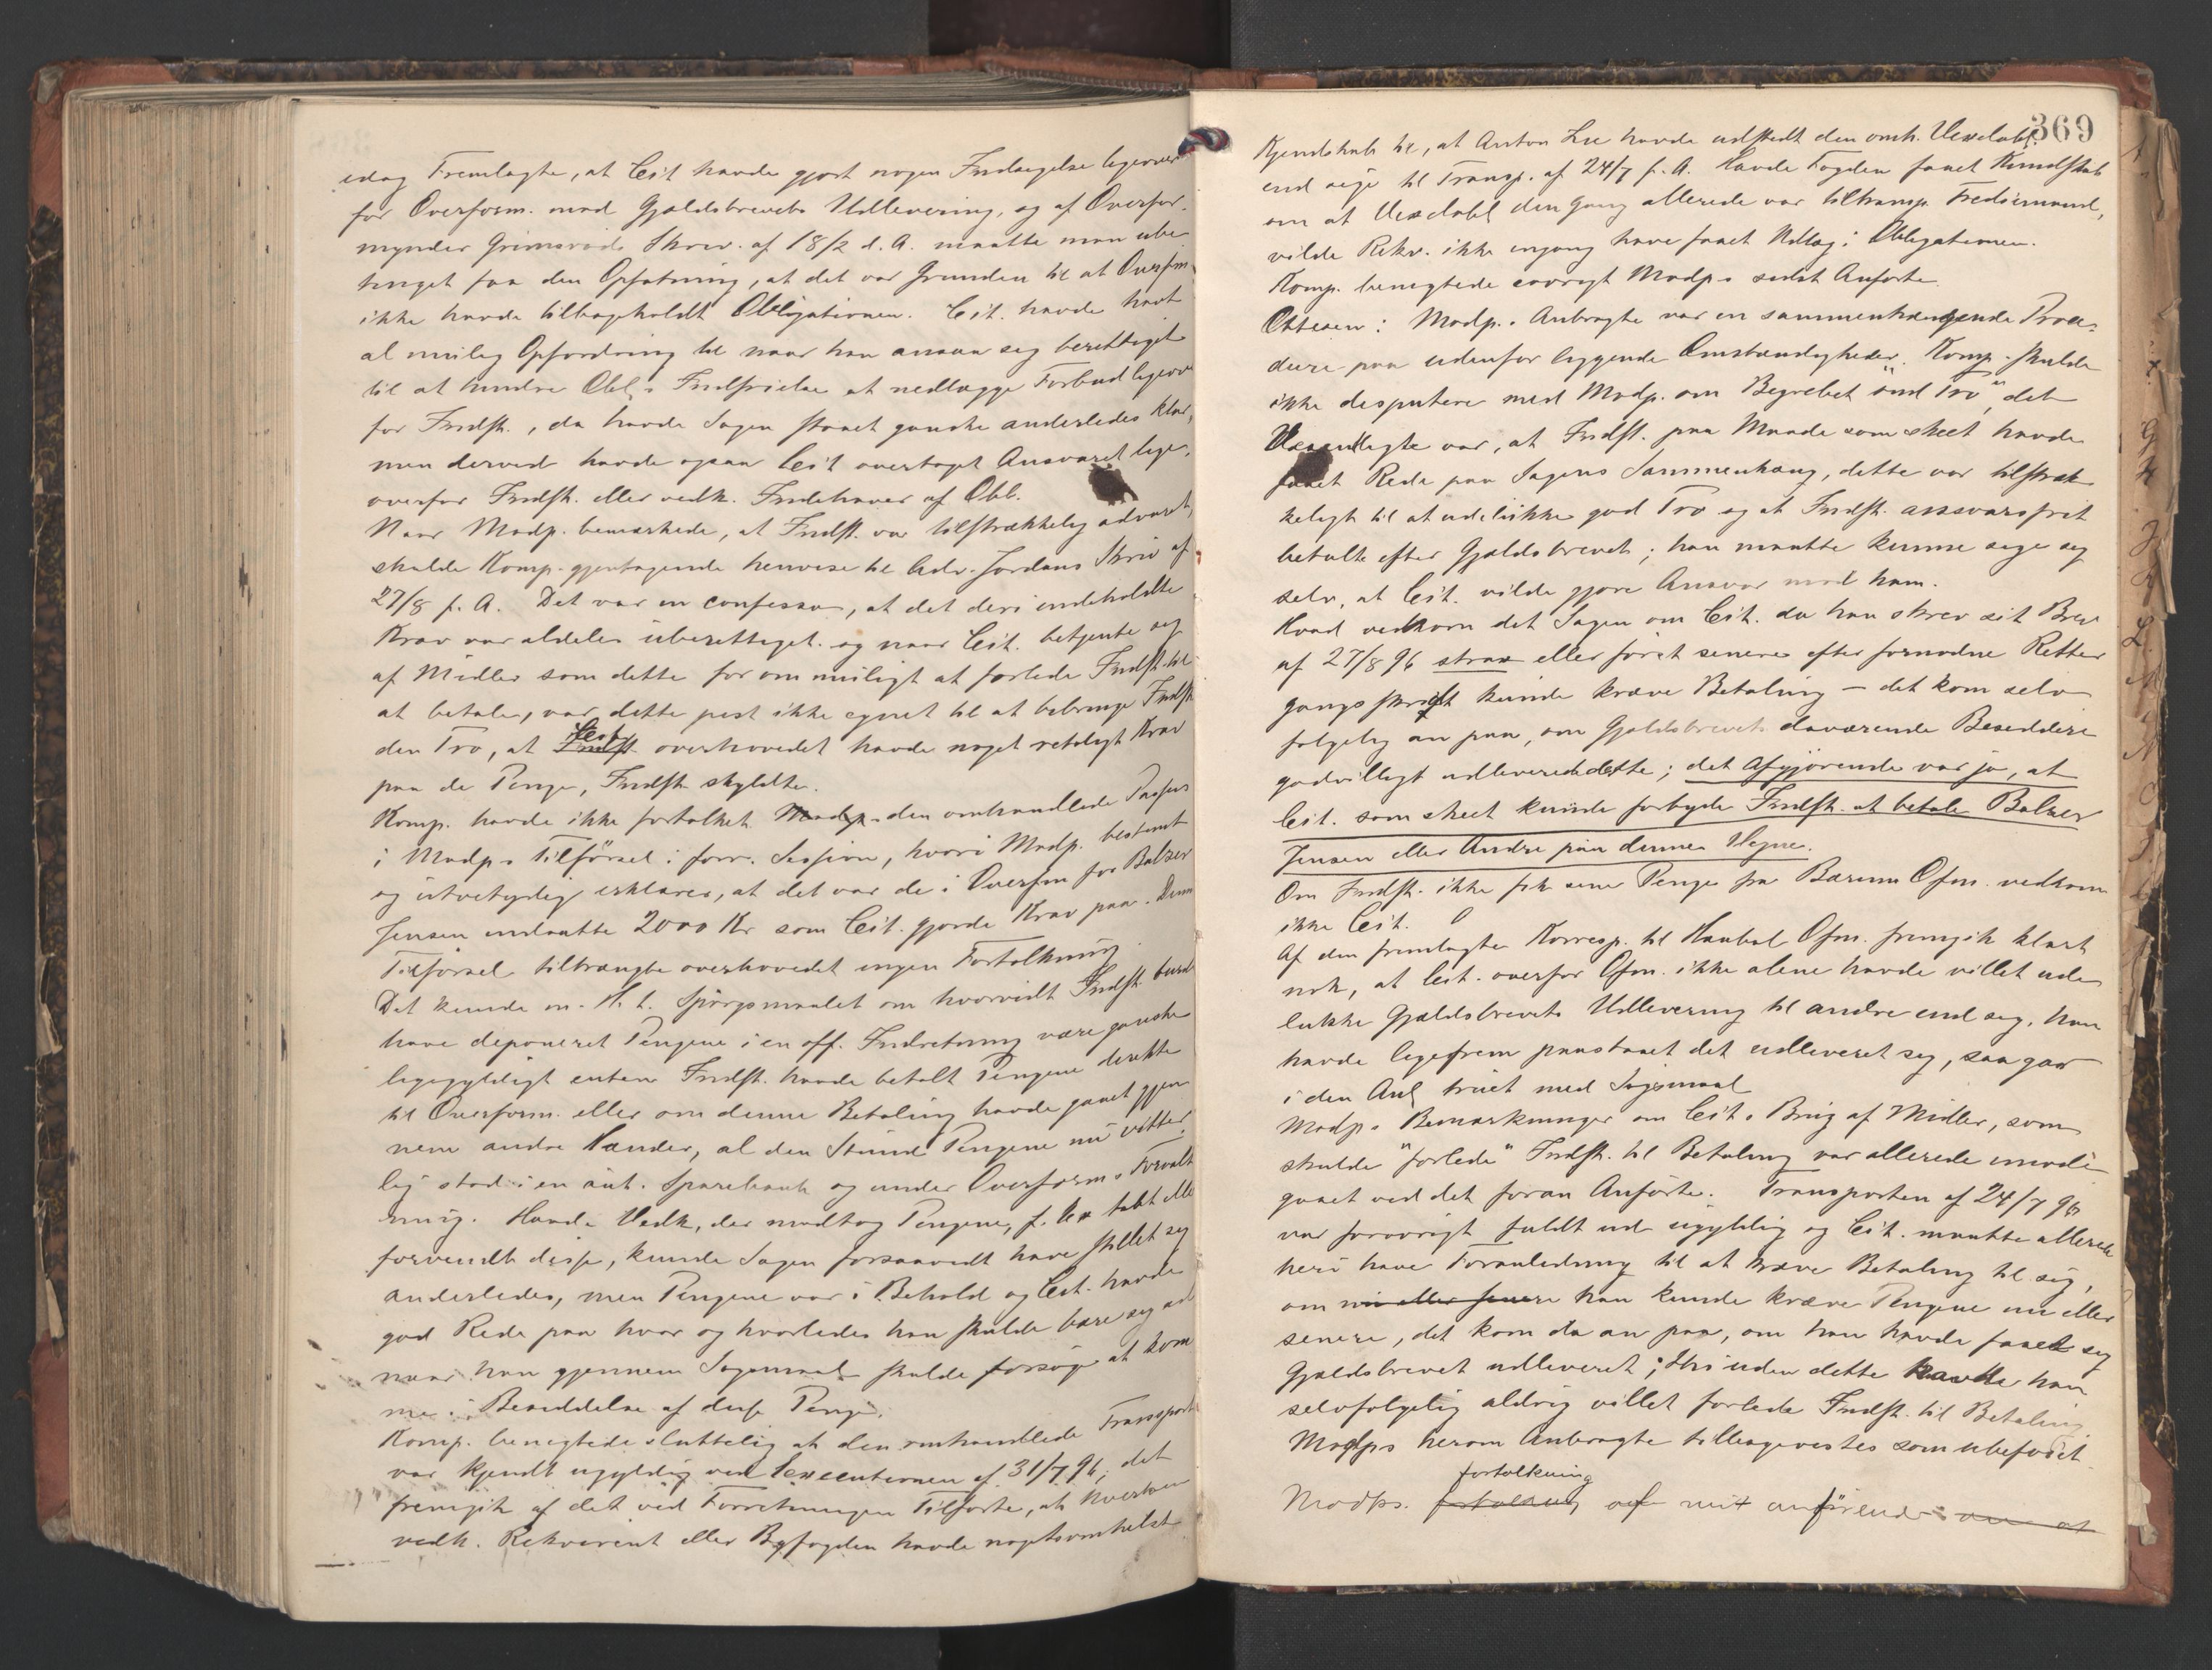 idag Fremlagte, at Cit havde gjort nogen Indsigelse ligeover
for Overform. mod Gjældsbrevets Udlevering, og af Overfor-
mynder Grimsrøds Skriv. af 18/2 d. A. maatte man ube-
tinget faa den Opfatning, at det var Grunden til at Overfm
ikke havde tilbageholdt Obligationen. Cit. havde havt
al mulig Opfordring til naar han ansaa sig berettiget
til at hindre Obl.s Indfrielse at nedlægge Forbud ligeov
for Indst., da havde Sagen staaet ganske anderledes klar,
men derved havde ogsaa Cit overtaget Ansvaret lige-
overfor Indst. eller vedk. Indehaver af Obl.
Naar Modp. bemærkede, at Indst. var tilstrækkelig advaret,
skulde Komp. gjentagende henvise til Adv. Jordans Skriv af
27/8 f. A. Det var in confesso, at det deri indeholdte
Krav var aldeles uberettiget. og naar Cit. betjente sig
af Midler som dette for om muligt at forlede Indst. til
at betale, var dette just ikke egnet til at bibringe Indst
den Tro, at Indst. Cit overhovedet havde noget retsligt Krav
paa de Penge, Indst. skyldte.
Komp. havde ikke fortolket Modp. den omhandlede Passus
i Modp.s Tilførsel i forr. Session, hvori Modp. bestemt
og utvetydig erklærer, at det var de i Overfm for Balzer
Jensen indsatte 2000 Kr som Cit. gjorde Krav paa. Denne
Tilførsel tiltrængte overhovedet ingen Fortolkning
Det kunde m. H. t. Spørgsmaalet om hvorvidt Indst. burde
have deponeret Pengene i en off. Indretning være ganske
ligegyldigt enten Indst. havde betalt Pengene direkte
til Overform. eller om denne Betaling havde gaaet gjen-
nem andre Hænder, al den Stund Pengene nu vitter-
lig stod i en aut. Sparebank og under Overform.s Forvalt
ning. Havde Vedk., der modtog Pengene, f. Ex tabt eller
forvendt disse, kunde Sagen forsaavidt have stillet sig
anderledes, men Pengene var i Behold og Cit. havde
god Rede paa hvor og hvorledes han skulde bære sig ad
naar han gjennem Søgsmaal skulde forsøge at kom
me i Besiddelse af disse Penge.
Komp. benegtede sluttelig at den omhandlede Transport
var kjendt ugyldig ved Executionen af 31/7 96; det
fremgik af det ved Forretningen Tilførte, at hverken
vedk. Rekvirent eller Byfogden havde nogetsomhelst
369
Kjendskab til, at Anton Lie havde udstedt den omh. Vexelobl.
end sige til Transp. af 24/7 f. A. Havde Fogden faaet Kundskab
om at Vexelobl den Gang allerede var tiltransp. Trediemand,
vilde Rekv. ikke engang have faaet Udlæg i Obligationen.
Komp. benegtede iøvrigt Modp.s sidst Anførte
Olsen: Modp.s Anbragte var en sammenhængende Proce-
dure paa udenfor liggende Omstændigheder. Komp. skulde
ikke disputere med Modp. om Begrebet "ond Tro", det
Væsentligste var, at Indst. paa Maade som skeet havde
faaet Rede paa Sagens Sammenhæng, dette var tilstræk-
keligt til at udelukke god Tro og at Indst. ansvarsfrit
betalte efter Gjældsbrevet; han maatte kunne sige sig
selv, at Cit. vilde gjøre Ansvar mod ham.
Hvad vedkom det Sagen om Cit. da han skrev sit Brev
af 27/8 96 strax eller først senere efter fornødne Retter
gangsskridt kunde kræve Betaling – det kom selv-
følgelig an paa, om Gjældsbrevets daværende Besiddere
godvilligt udleverede dette; det Afgjørende var jo, at
Cit. som skeet kunde forbyde Indst. at betale Balzer
Jensen eller Andre paa dennes Vegne.
Om Indst. ikke fik sine Penge fra Bærum Ofm. vedkom
ikke Cit.
Af den fremlagte Korresp. til Ofm. fremgik klart
nok, at Cit. overfor Ofm. ikke alene havde villet ude-
lukke Gjældsbrevets Udlevering til andre end sig. Han
havde ligefrem paastaaet det udleveret sig, saagar
i den Anl. truet med Søgsmaal
Modp.s Bemærkninger om Cit.s Brug af Midler, som
skulde "forlede" Indst. til Betaling var allerede imøde-
gaaet ved det foran Anførte. Transporten af 24/7 96
var forøvrigt fuldt ud ugyldig og Cit. maatte allerede
heri have Foranledning til at kræve Betaling til sig,
om nu eller senere han kunde kræve Pengene nu eller
senere, det kom da an paa, om han havde faaet sig
Gjældsbrevet udleveret; thi uden dette havde han
selvfølgelig aldrig villet forlede Indst. til Betaling
Modps herom Anbragte tilbagevistes som ubeføiet.
Modps. fortolkning fortolkning af mit anførende om at